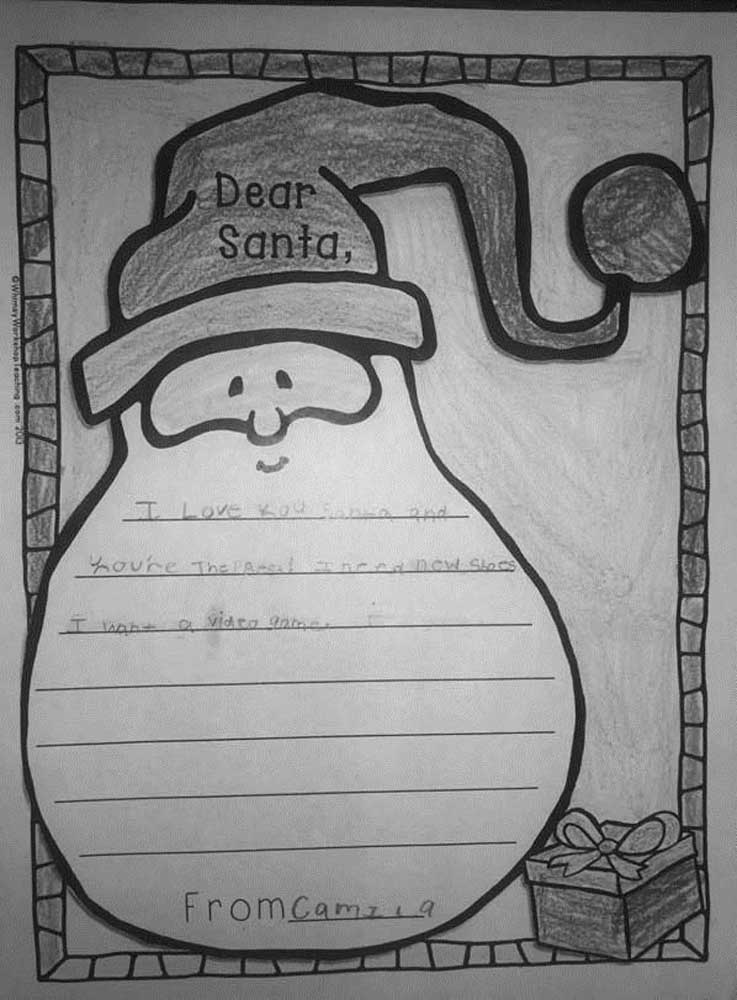 Dear
Santa,
I Love You Santa and
You're The Best I need new shoes
I want a video game.
From Camila
©WhimsyWorkshopTeaching.com 2013